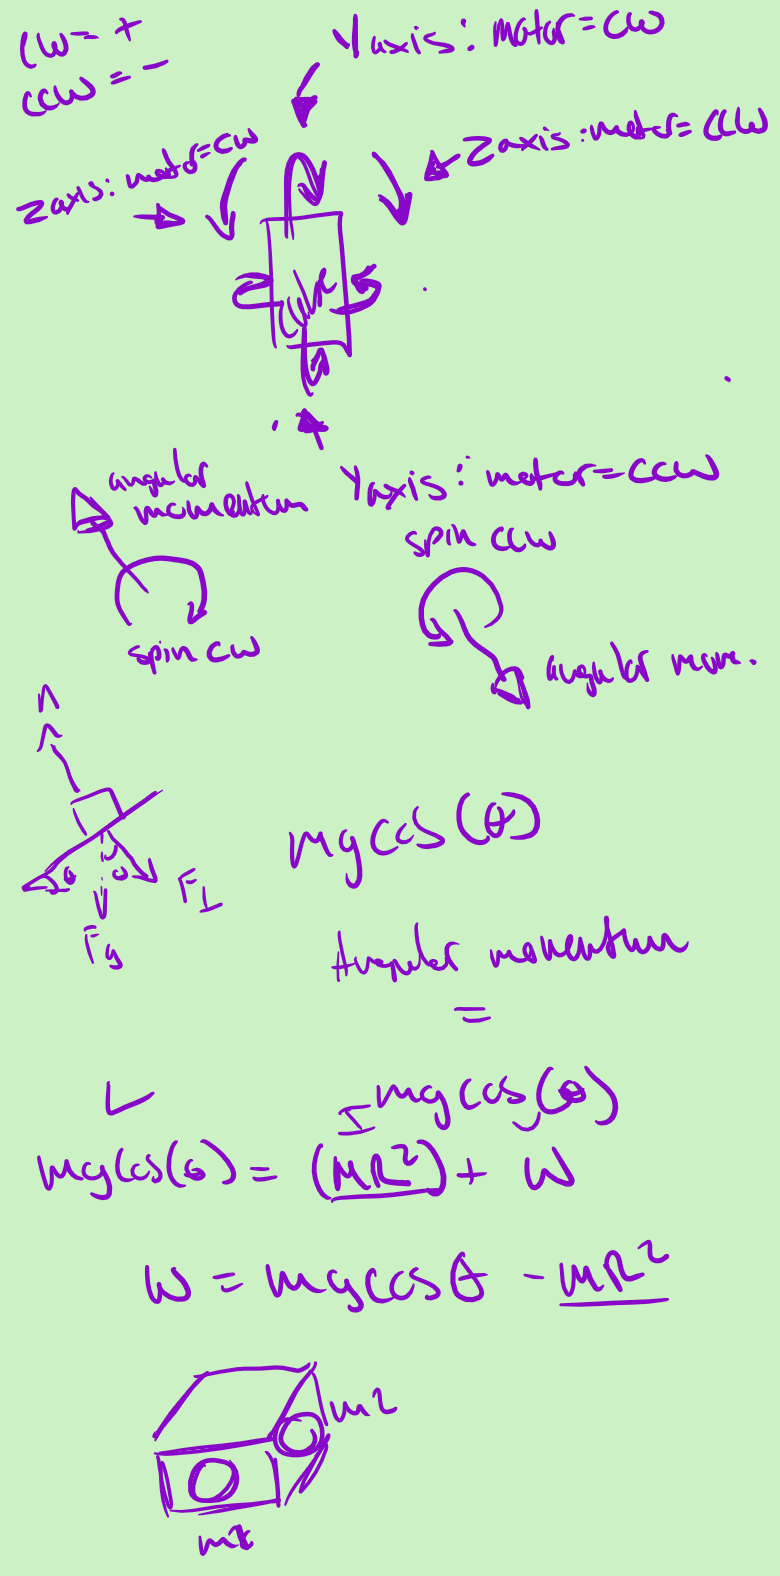 CW = +
CCW = -
Y axis: motor = CW
Z axis: motor = CW
Z axis: motor = CCW
Y axis: motor = CCW
angular
momentum
spin CW
spin CCW
angular mom.
n
θ
θ
F⊥
Fg
mg cos(θ)
Angular momentum
=
L
I mg cos(θ)
mg cos(θ) = (MR²) + W
W = mg cos θ - MR²
m2